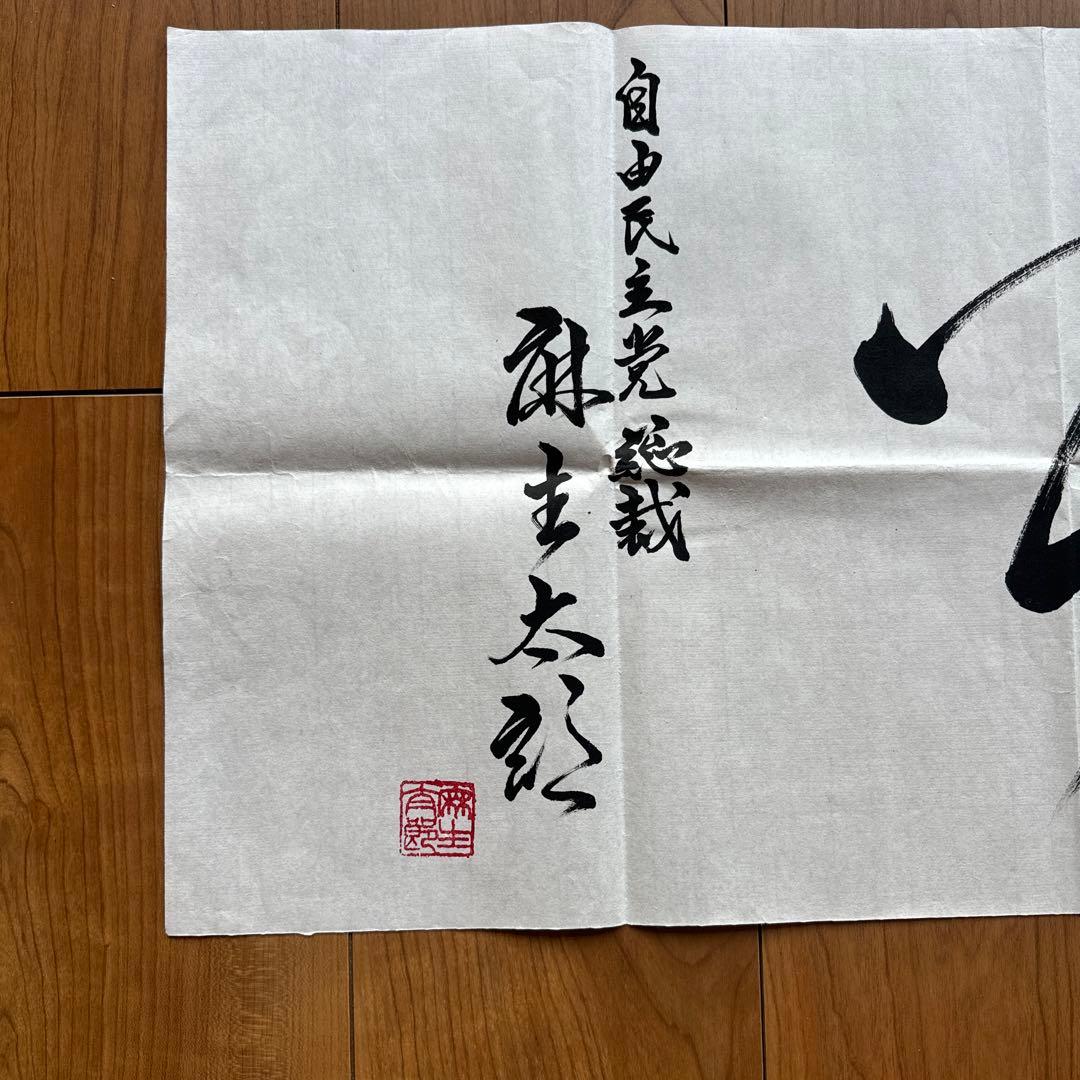 自由民主党総裁
麻生太郎
麻生
太郎